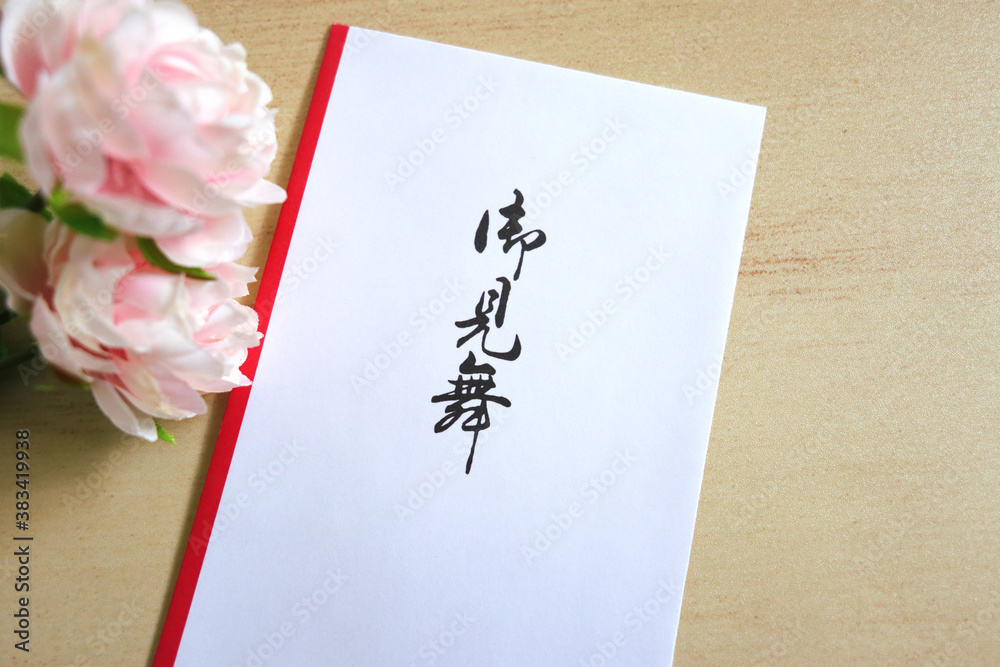 御見舞
Adobe Stock | #383419938